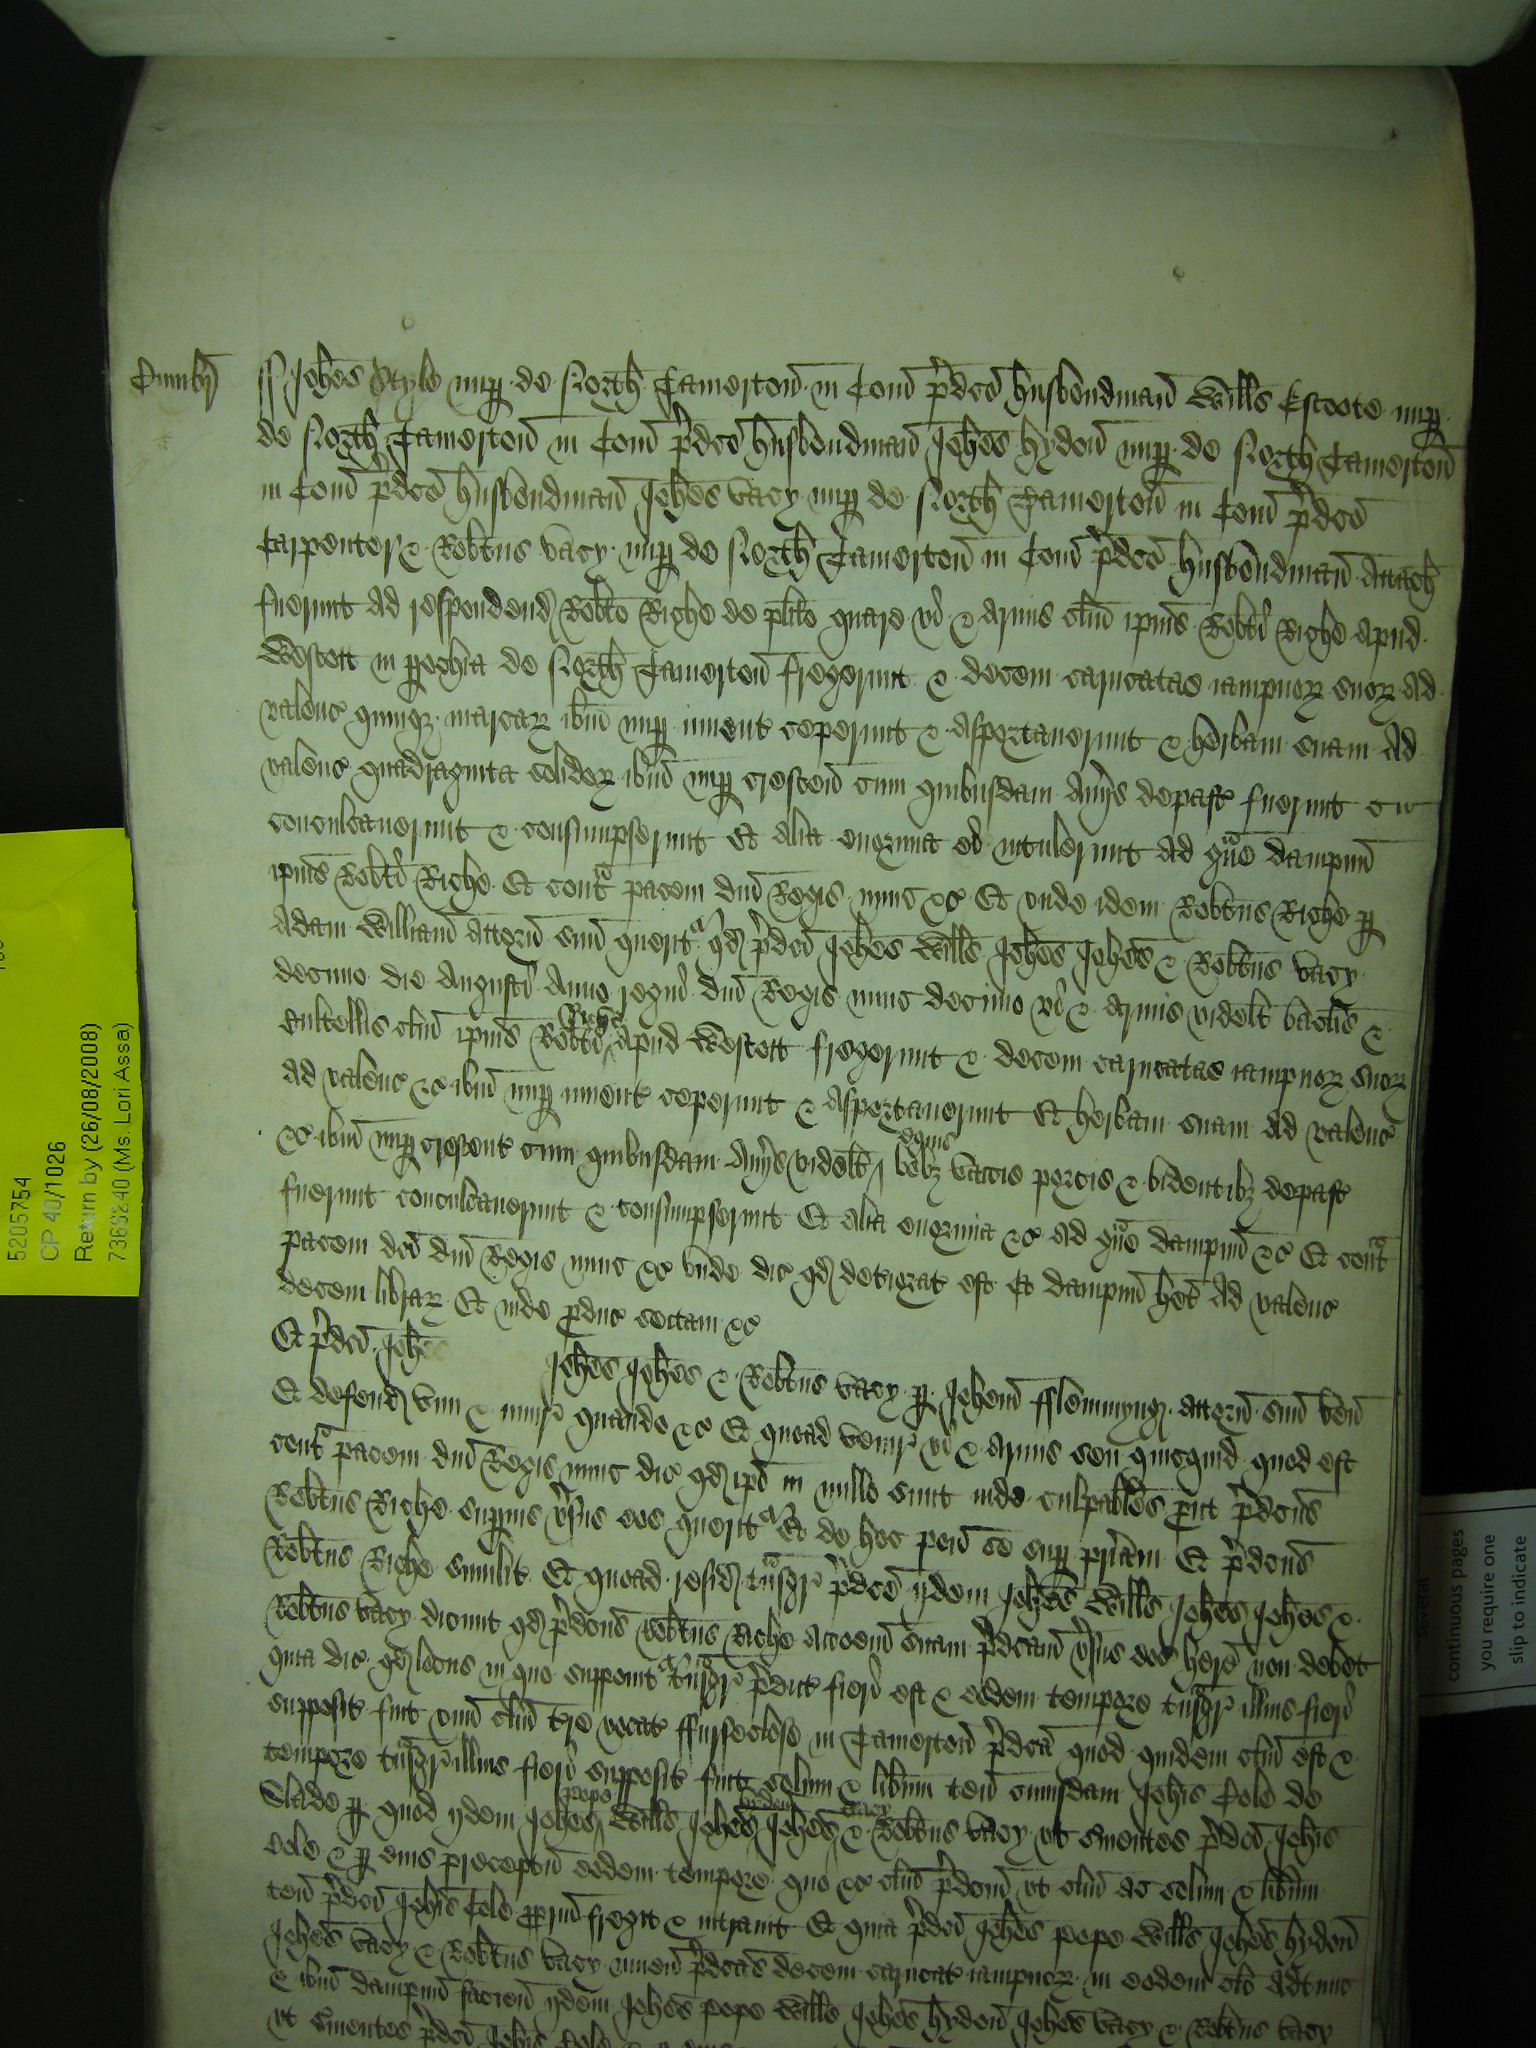 Cornub
ss Johes Style nup de North Tamerton in Com pdco husbondman Wills Estcote nup
de North Tamerton in Com pdco husbondman Johes hydon nup de North Tamerton
in Com pdco husbondman Johes vacy nup de North Tamerton in Com pdco
Carpenter & Robtus vacy nup de North Tamerton in Com pdco husbondman attach
fuerunt ad respondend Robto Riche de plito quare vi & armis clm ipius Robti Riche apud
Westcott in pochia de North Tamerton fregerunt & decem carucatas iampnor suor ad
valenc quinqz marcar ibm nup invent ceperunt & asportaverunt & herbam suam ad
valenc quadraginta solidor ibm nup crescen cum quibusdam aviis depast fuerunt
conculcaverunt & consumpserunt Et alia enormia ei intulerunt ad gve dampnm
ipius Robti Riche Et contra pacem dni Regis nunc &c Et unde idem Robtus Riche p
Adam William attorn suum querit qd pdci Johes Wills Johes Johes & Robtus vacy
decimo die Augusti Anno regni dni Regis nunc decimo vi & armis videlt baclis &
Cultellis clm ipius Robti Riche apud Westcott fregerunt & decem carucatas iampnor suor
ad valenc &c ibm nup invent ceperunt & asportaverunt Et herbam suam ad valenc
&c ibm nup crescent cum quibusdam aviis videlt equis bobz vaccis porcis & bidentibz depast
fuerunt conculcaverunt & consumpserunt Et alia enormia &c ad gve dampnm &c Et contra
pacem dci dni Regis nunc &c unde dic qd deteriorat est Et dampnm het ad valenc
decem librar Et inde pduc sectam &c
Et pdci Johes Johes Johes & Robtus vacy p Johem fflemmyng attorn suum ven
Et defend vim & iniur quando &c Et quoad venir vi & armis seu quicquid quod est
contra pacem dni Regis nunc dic qd ipi in nullo sunt inde culpabiles put pdcus
Robtus Riche supius vsus eos querit Et de hoc pon se sup priam Et pdcus
Robtus Riche similit Et quoad resid tnsgr pdce ijdem Johes Wills Johes Johes &
Robtus vacy dicunt qd pdcus Robtus Riche accoem suam pdcam vsus eos here non debet
quia dic qd locus in quo supponit tnsgr pdict fieri est & eodem tempore tnsgr illius fieri
supposit fuit unu clm tre vocat ffursclose in Tamerton pdca quod quidem clm est &
tempore tnsgr illius fieri supposit fuit solum & librum ten cuiusdam Johis Cole de
Slade p quod ijdem Johes pope Wills Johes hydon Johes vacy & Robtus vacy ut svientes pdci Johis
Cole & p eius preceptu eodem tempore quo &c clm pdcum ut clm ac solum & librum
ten pdci Johis Cole ppriu fregit & intravit Et quia pdci Johes pope Wills Johes hydon
Johes vacy & Robtus vacy invent pdcas decem carucat iampnor in eodem clo adtunc
& ibm dampnm facien ijdem Johes pope Wills Johes hydon Johes vacy & Robtus vacy
ut svientes pdci Johis Cole
5205754
CP 40/1026
Return by (26/08/2008)
7363240 (Ms. Lori Assa)
several
continuous pages
you require one
slip to indicate